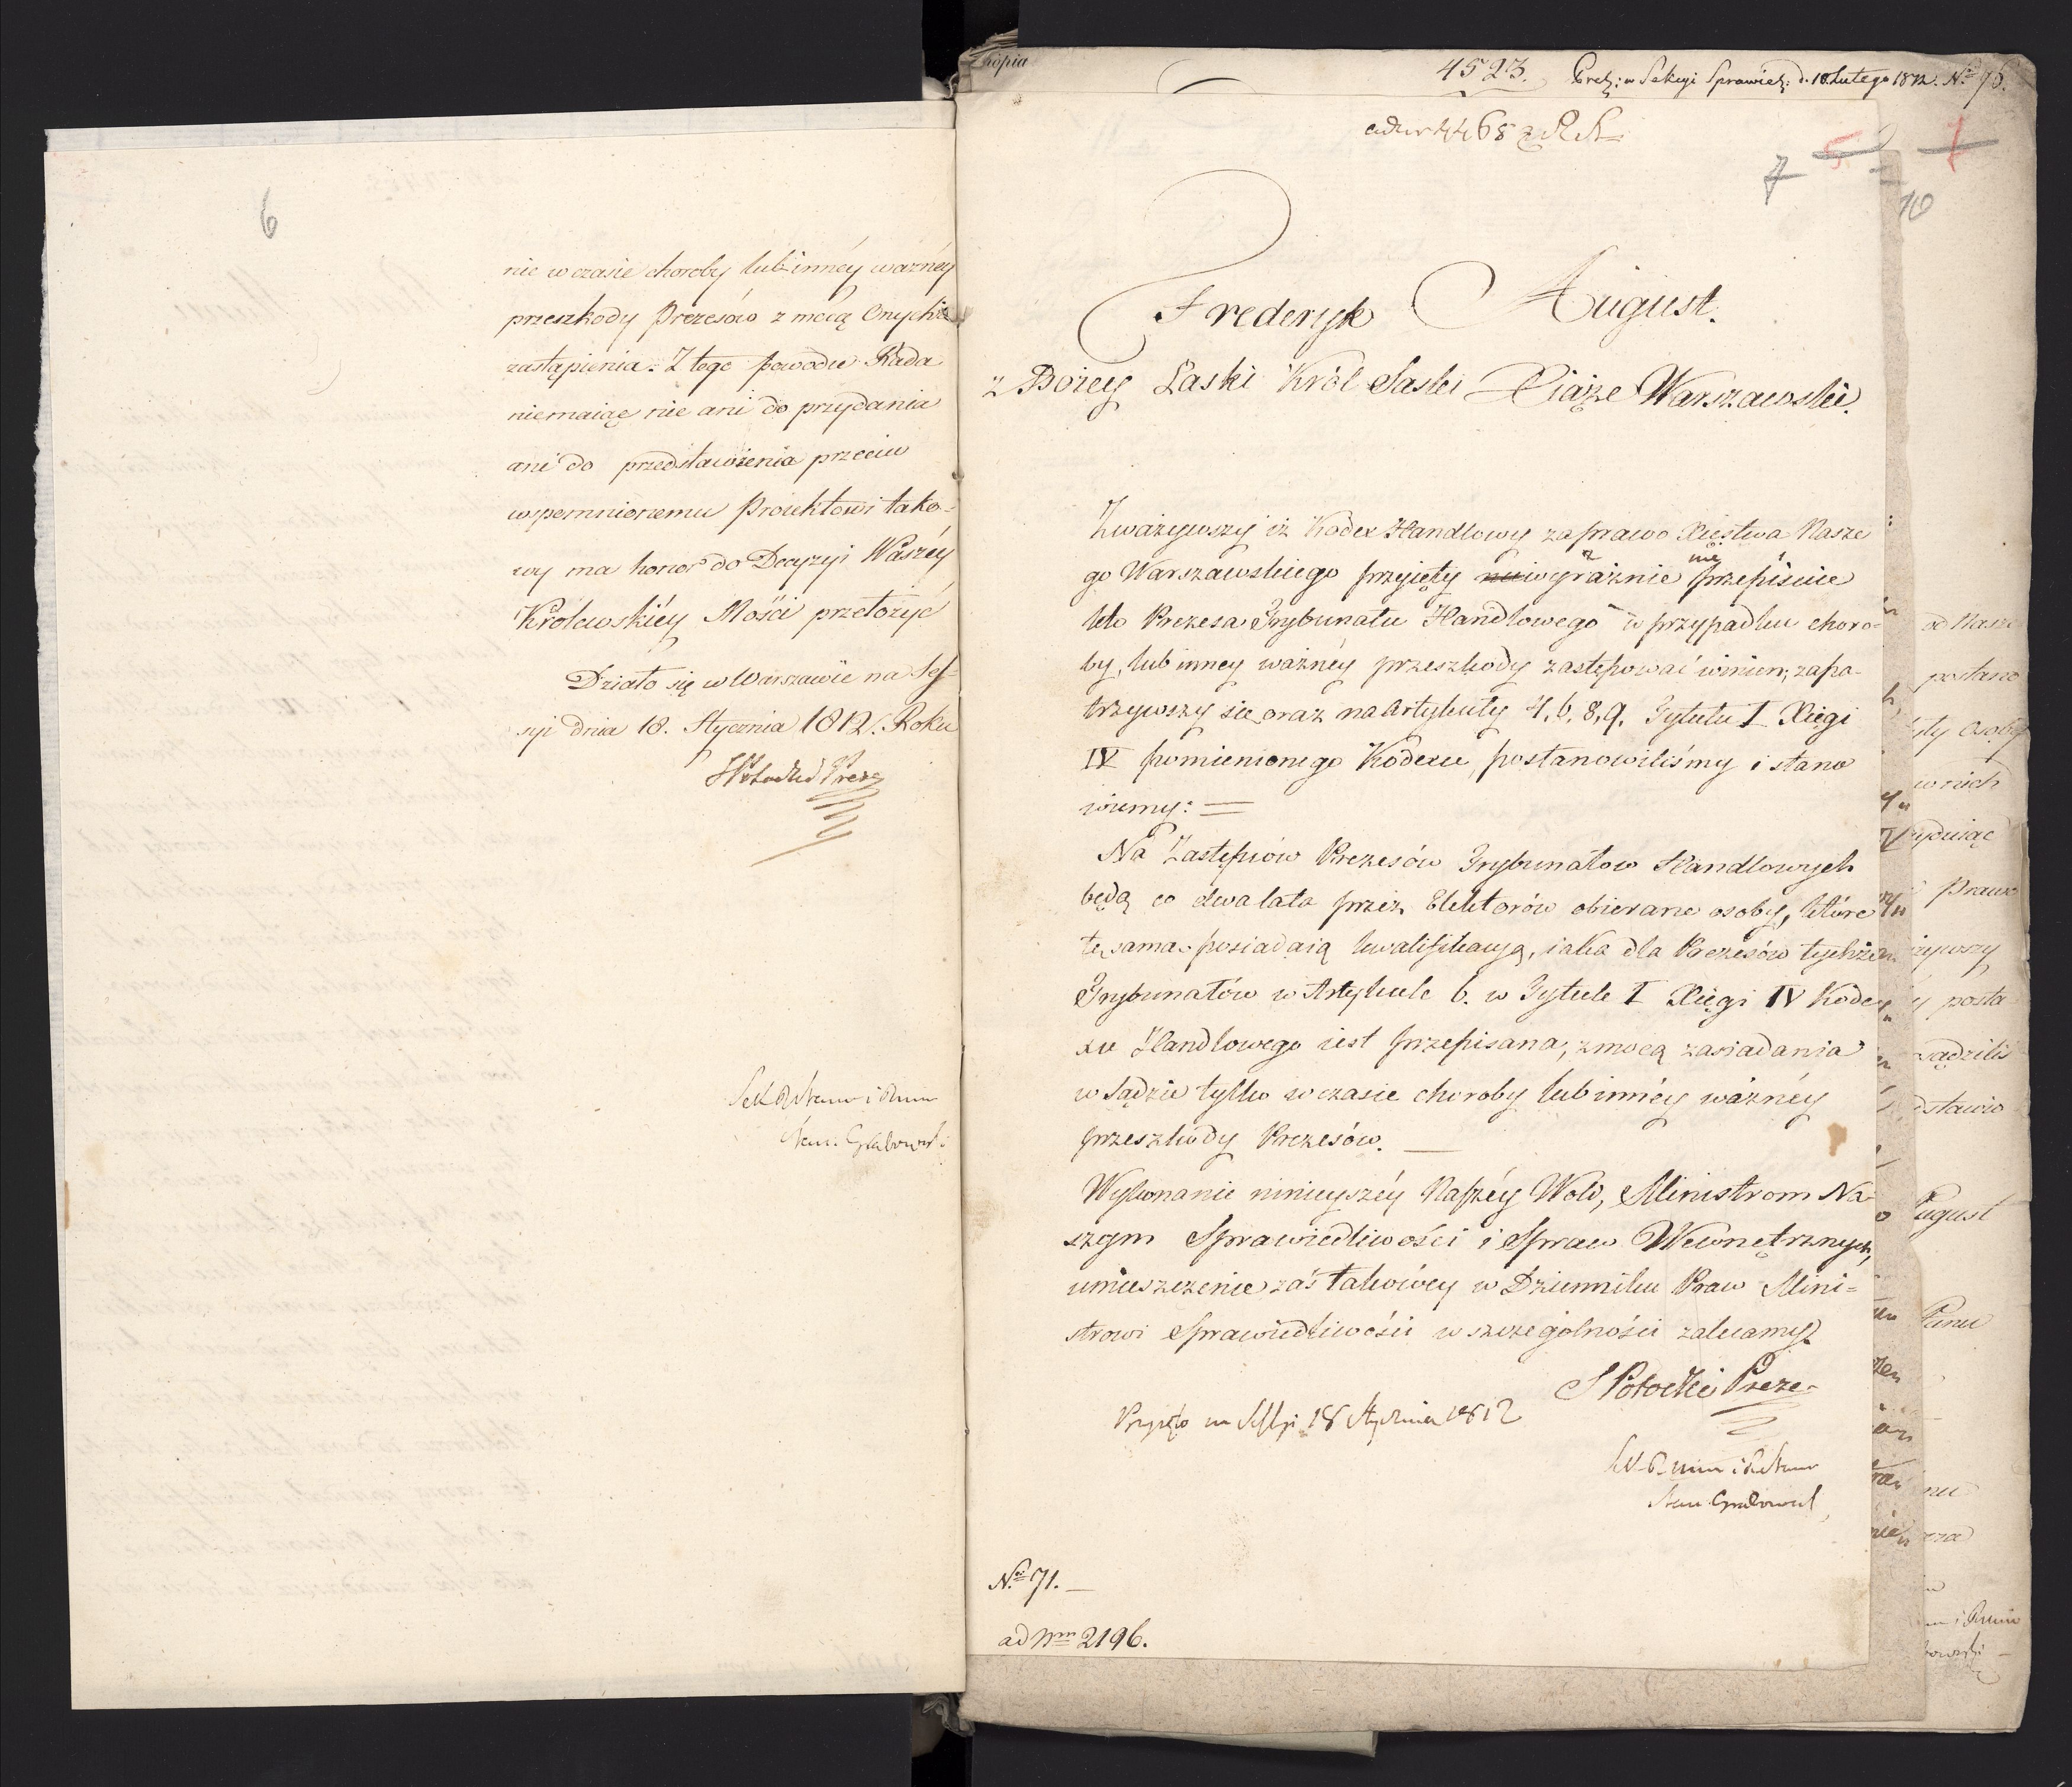 6
nie w czasie choroby lub inney ważney
przeszkody Prezesów z mocą Onychże
zastąpienia. Z tego powodu Rada
niemaiąc nic ani do przydania
ani do przedstawienia przeciw
wspomnionemu Proiektowi tako-
wy ma honor do Decyzyi Waszéy
Królewskiéy Mości przełożyć
Działo się w Warszawie na Ses-
syi dnia 18. Stycznia 1812. Roku
Potocki Preze
Sek R Stanu i Rmin
Stan. Grabowski
Kopia
4523. Prez: w Sekcyi Sprawiedl: d. 18 Lutego 1812. No 76.
ad nr 4468 R S
7 5 1
10
Frederyk August.
z Bożey Łaski Król Saski Xiąże Warszawski.
Zważywszy iż Kodex Handlowy za prawo Xięstwa Nasze
go Warszawskiego przyięty wyraźnie nie przepisuie
kto Prezesa Trybunału Handlowego w przypadku choro-
by, lub inney ważnéy przeszkody zastępować winien; zapa-
trzywszy się oraz na Artykuły 4, 6, 8, 9, Tytułu I Xięgi
IV pomienionego Kodexu, postanowiliśmy i stano
wiemy: =
Na Zastępców Prezesów Trybunałow Handlowych
będą co dwa lata przez Elektorów obierane osoby, które
tę samą posiadaią kwalifikacyą, iaka dla Prezesów tychże
Trybunałów w Artykule 6. w Tytule I Xięgi IV Kode
xu Handlowego iest przepisana, z mocą zasiadania
w Sądzie tylko w czasie choroby lub innéy ważnéy
przeszkody Prezesów. —
Wykonanie ninieyszéy Naszéy Woli, Ministrom Na-
szym Sprawiedliwości i Spraw Wewnętrznych,
umieszczenie zaś takowéy w Dzienniku Praw Mini-
strowi Sprawiedliwości w szczególności zalecamy.
S Potocki Preze
Przyięto na Sessyi 18 Stycznia 1812
Sek R min i R Stanu
Stan. Grabowski
No 71. —
ad Nrm 2196.
od Nasze
postano
osoby
w nich
Prawo
żywszy
posta
sądzili
dstawio
August
Panu